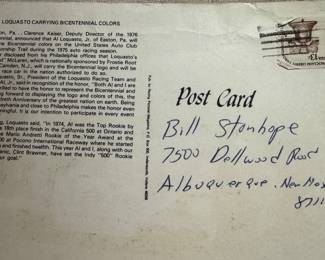 LOQUASTO CARRYING BICENTENNIAL COLORS
Pa. - Clarence Keiser, Deputy Director of the 1976
announced that Al Loquasto, Jr. of Easton, Pa. will
Bicentennial colors on the United States Auto Club
Trail during the 1975 auto racing season.
disclosed from his Philadelphia offices that Loquasto's
McLaren, which is sponsored by Frostie Root
Camden, N.J., will carry the Bicentennial logo and will be
race car in the nation authorized to do so.
Loquasto, Sr., President of the Loquasto Racing Team and
said in recognition of the honor. "Both Al and I are
to have the honor to represent the Bicentennial and
forward to carrying the logo and colors of this, the
Anniversary of the greatest nation on earth. Being
and close to Philadelphia makes the honor even
It is our intention to participate in every event
Loquasto said, "In 1974, Al was the Top Rookie by
18th place finish in the California 500 at Ontario and
Mario Andretti Rookie of the Year Award at the
at Pocono International Raceway where he started
and finished twelfth. This year Al and I, along with our
Clint Brawner, have set the Indy "500" Rookie
our goal."
Post Card
Bill Stanhope
7500 Dellwood Road
Albuquerque, New Mex
8711